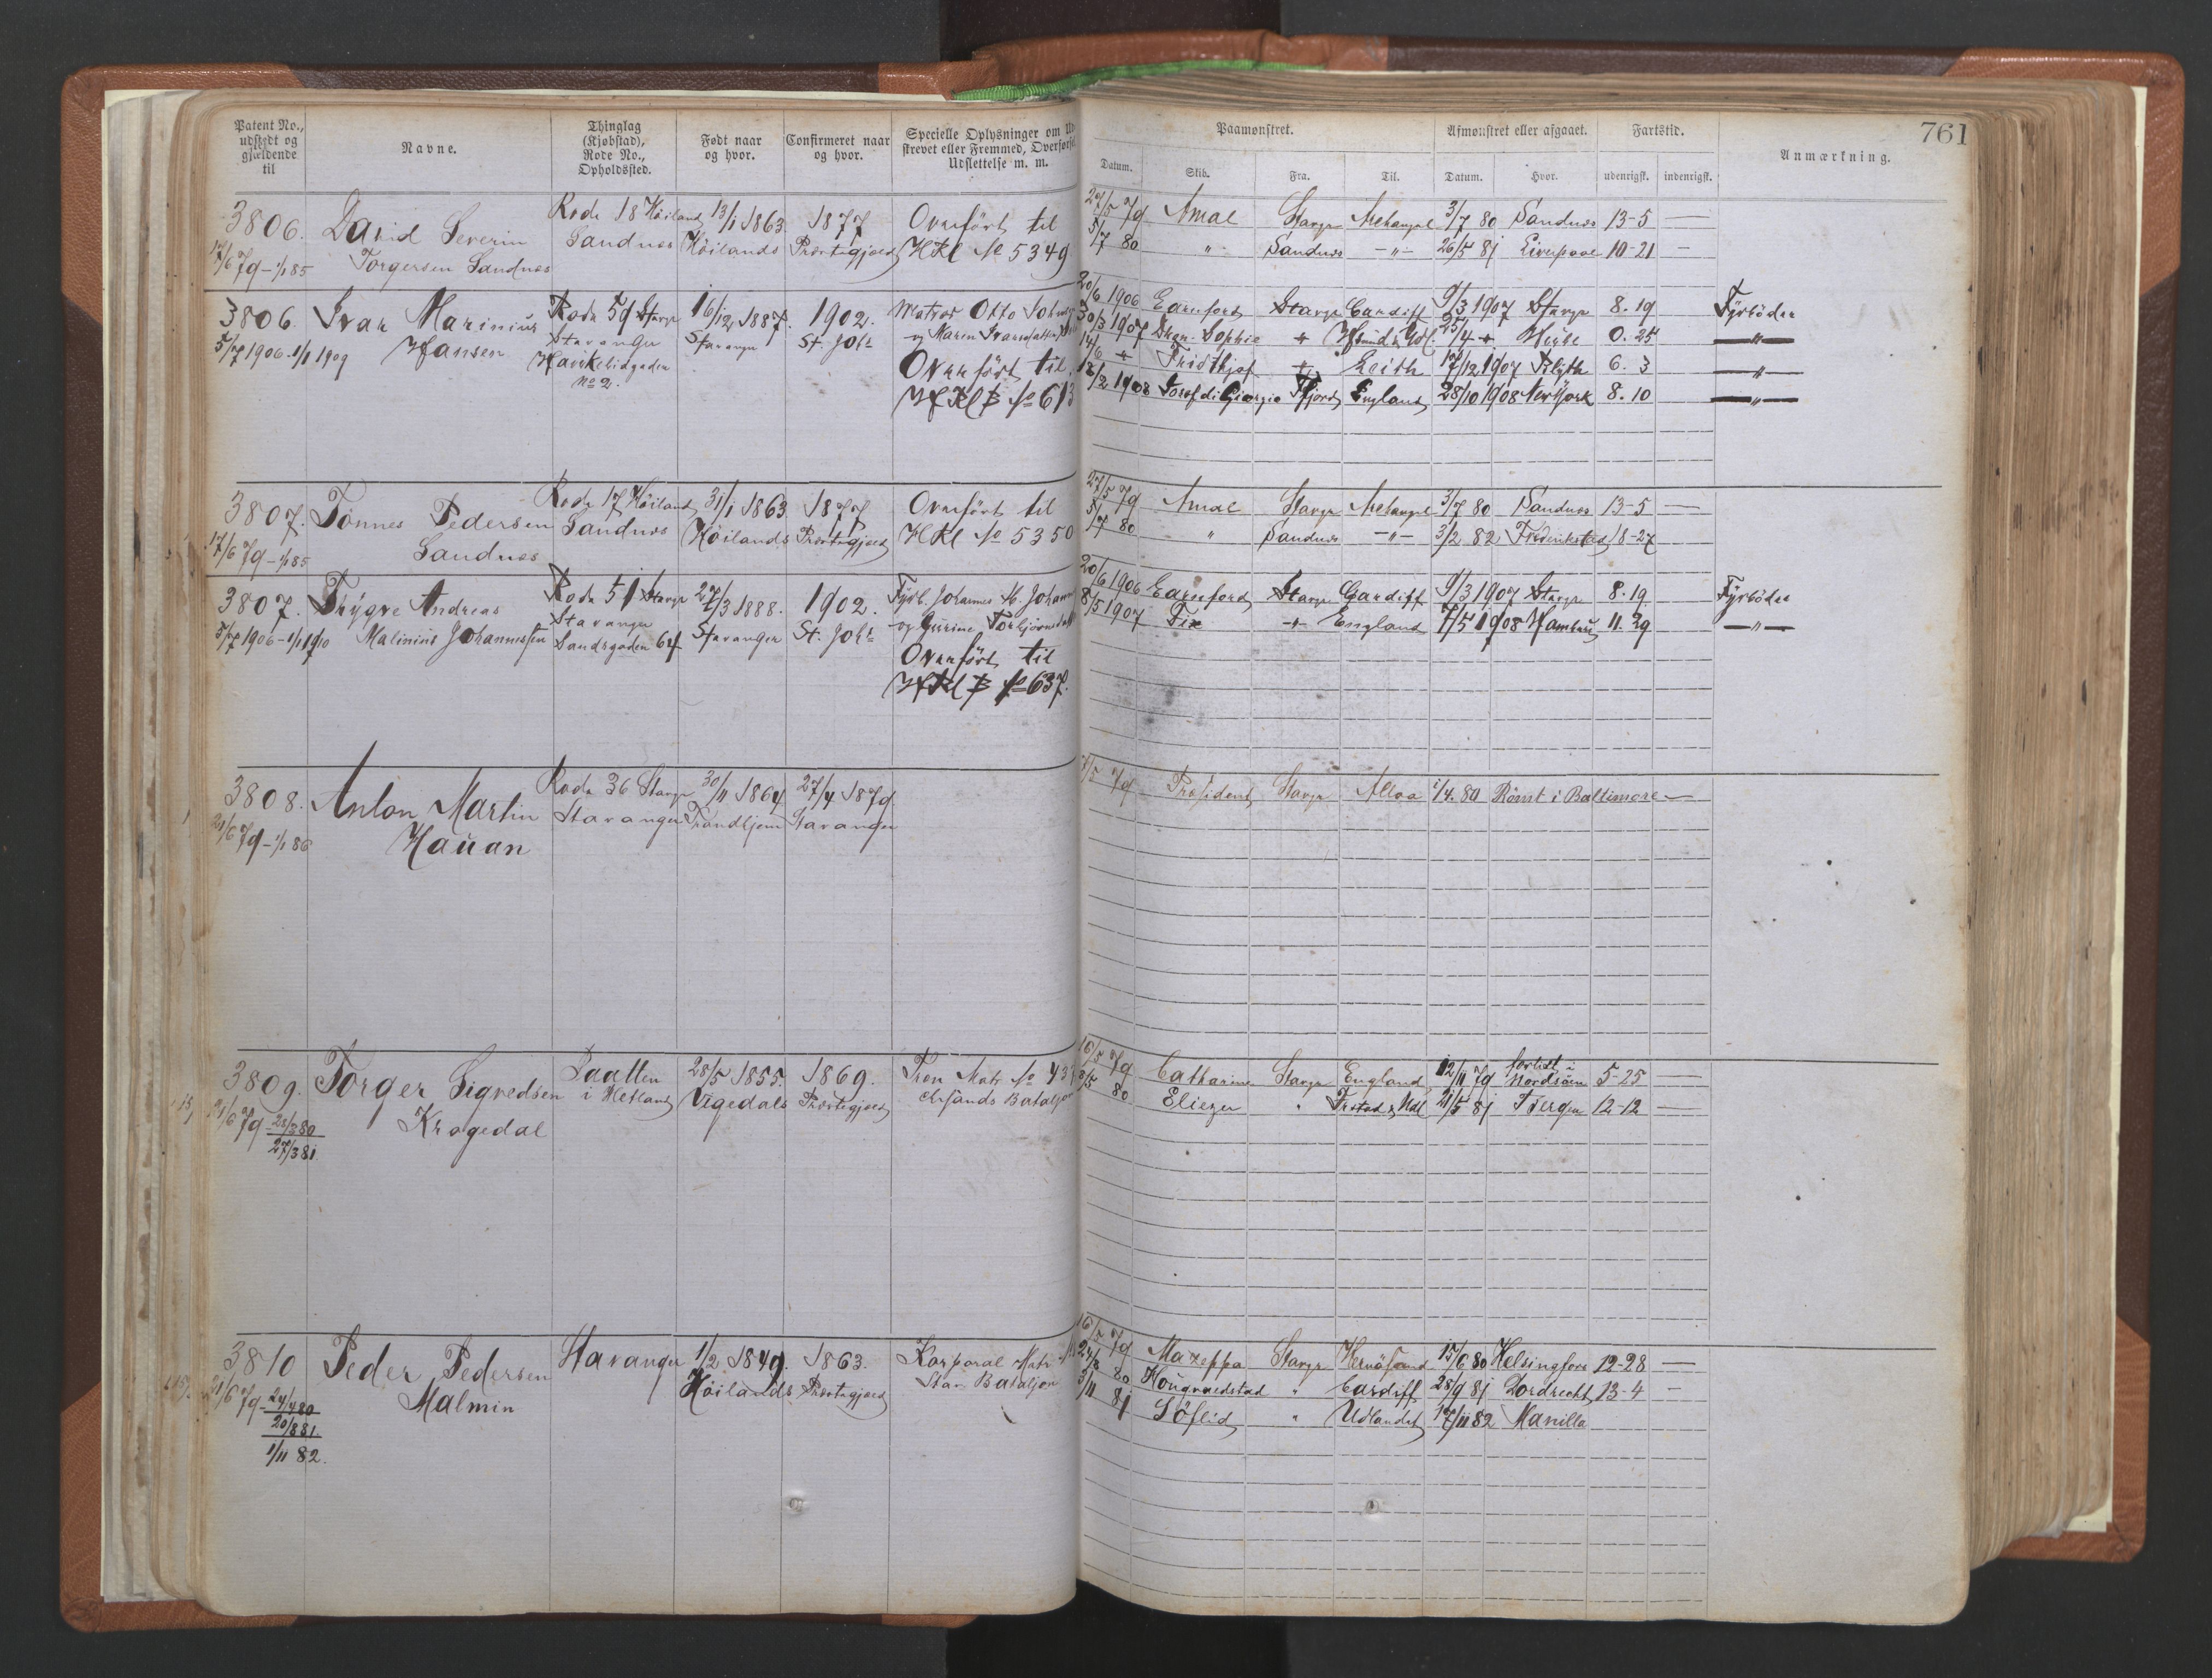 Patent No., udstedt og gjældende til
Navne.
Thinglag (Kjøbstad), Rode No., Opholdssted.
Født naar og hvor.
Confirmeret naar og hvor.
Specielle Oplysninger om Ud
strevet eller Fremmed, Overførsel
Udslettelse m. m.
Paamønstret.
Afmønstret eller afgaaet.
Fartstid.
Anmærkning.
761
Datum.
Skib.
Fra.
Til.
Datum.
Hvor.
udenrigsk.
indenrigsk.
3806.
17/6 79 - 1/1 85
David Severin
Torgersen Sandnes
Rode 18 Höiland
Sandnes
13/1 1863.
Höilands
1877
Præstegjæld
Overfört til
HRl No 5349
27/5 79 Amal Stavgr Archangel 3/7 80 Sandnes 13-5 —
5/7 80 " Sandnes -"- 26/5 81 Liverpool 10-21 —
3806.
5/7 1906 - 1/1 1909
Ivar Marinius
Hansen
Rode 59 Stavgr
Stavanger
Haukelidgaden
No 2.
16/12 1887.
Stavanger
1902.
St. Joh.
Matros Otto
og Maren
Overfört til
HRl B No 613
20/6 1906 Earnford Stavgr Cardiff 9/3 1907 Stavgr 8. 19 Fyrböder
30/3 1907 Dron. Sophie + 25/4 + 0. 25 —"—
14/6 + Fridthjof + Leith 17/12 1907 Blyth 6. 3 —"—
18/2 1908 Josef di Giorgio England 28/10 1908 New York 8. 10 —"—
3807.
17/6 79 - 1/1 85
Tönnes Pedersen
Sandnes
Rode 17 Höiland
Sandnes
31/1 1863.
Höilands
1877
Præstegjæld
Overfört til
HRl No 5350
27/5 79 Amal Stavgr Archangel 3/7 80 Sandnes 13-5 —
5/7 80 " Sandnes -"- 3/2 82 Frederikstad 18-27
3807.
5/7 1906 - 1/1 1910
Thygve Andreas
Malinius Johannessen
Rode 51 Stavgr
Stavanger
Sandsgaden 64
27/3 1888.
Stavanger
1902.
St. Joh.
Fyrb. Johannes
og Gurine Torbjörnsdatt
Overfört til
HRl B No 637.
20/6 1906 Earnford Stavgr Cardiff 9/3 1907 Stavgr 8. 19. Fyrböder
8/5 1907 Fix -"- England 7/5 1908 Hamburg 11. 29 —"—
3808.
21/6 79 - 1/1 86
Anton Martin
Hauan
Rode 36 Stavgr
Stavanger
30/11 1864
Trondhjem
27/4 1879
Stavanger
79 President Stavgr Alloa 1/4. 80 Römt i Baltimore —
3809.
21/6 79 - 28/3 80
27/3 81.
Torger Sigvedsen
Kragedal
Paatten
i Hetland
28/5 1855.
Vigedals
1869.
Præstegjæld
Matr No 43
Bataljon
16/5 79 Catharine Stavgr England 12/11 79 forlist i Nordsöen 5-25 —
80 Eliezer " 21/5 81 Bergen 12-12 —
3810
21/6 79 - 24/4 80
20/8 81.
1/11 82.
Peder Pedersen
Malmin
Stavanger
1/2 1849.
Höilands
1863.
Præstegjæld
Korporal Matr
Stav. Bataljon
16/5 79 Mazeppa Stavgr Hernösand 15/6 80 Helsingfors 12-28 —
80 " Cardiff 28/9 81 Dordrecht 13-4 —
3/11 81 Söleid " Udlandet 17/11 82 Manilla